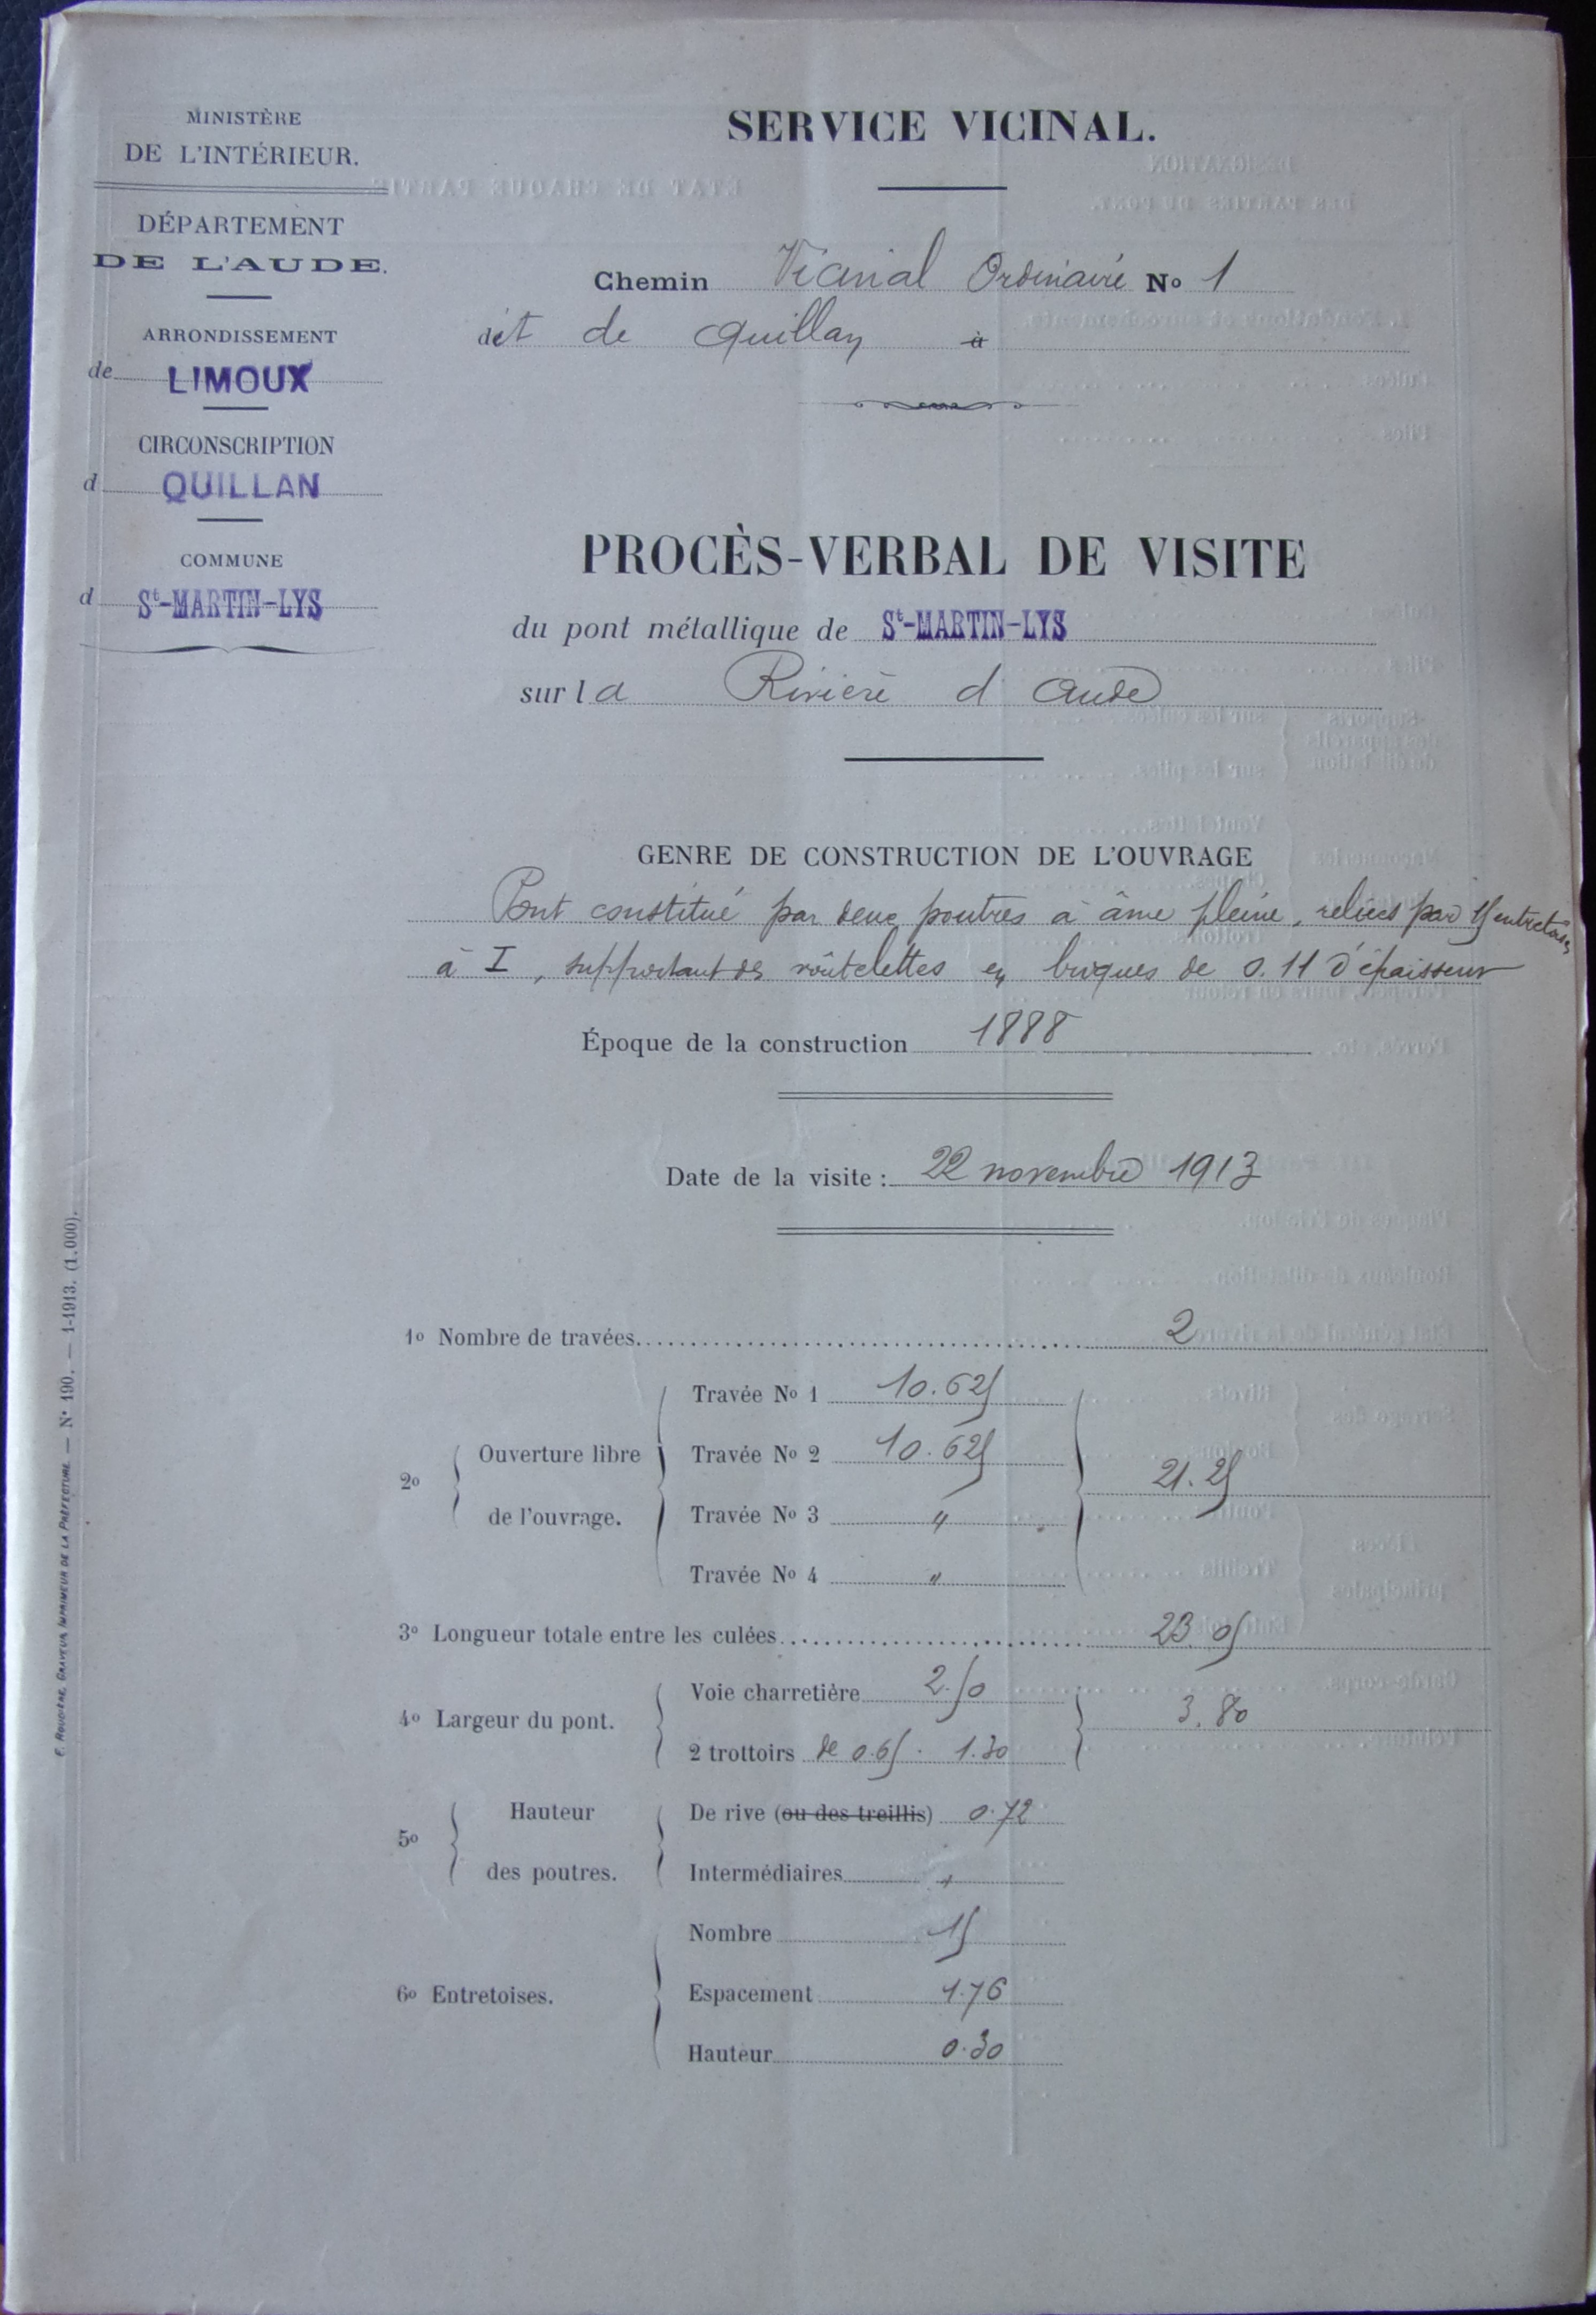 MINISTÈRE
DE L'INTÉRIEUR.
DÉPARTEMENT
DE L'AUDE.
ARRONDISSEMENT
de LIMOUX
CIRCONSCRIPTION
d QUILLAN
COMMUNE
d St-MARTIN-LYS
SERVICE VICINAL.
Chemin Vicinal Ordinaire No 1
dit de Quillan à
PROCÈS-VERBAL DE VISITE
du pont métallique de St-MARTIN-LYS
sur la Rivière d'Aude
GENRE DE CONSTRUCTION DE L'OUVRAGE
Pont constitué par deux poutres à âme pleine, reliées par 15 entretoises
à I, supportant des voûtelettes en briques de 0.11 d'épaisseur
Époque de la construction 1888
Date de la visite : 22 novembre 1913
1o Nombre de travées 2
2o Ouverture libre de l'ouvrage.
Travée No 1 10.625
Travée No 2 10.625
Travée No 3 "
Travée No 4 "
21.25
3o Longueur totale entre les culées 23.05
4o Largeur du pont.
Voie charretière 2.50
2 trottoirs de 0.65. 1.30
3.80
5o Hauteur des poutres.
De rive (ou des treillis) 0.72
Intermédiaires "
6o Entretoises.
Nombre 15
Espacement 1.76
Hauteur 0.30
F. ROUDIÈRE, GRAVEUR IMPRIMEUR DE LA PRÉFECTURE. — No 190. — 1-1913. (1.000).